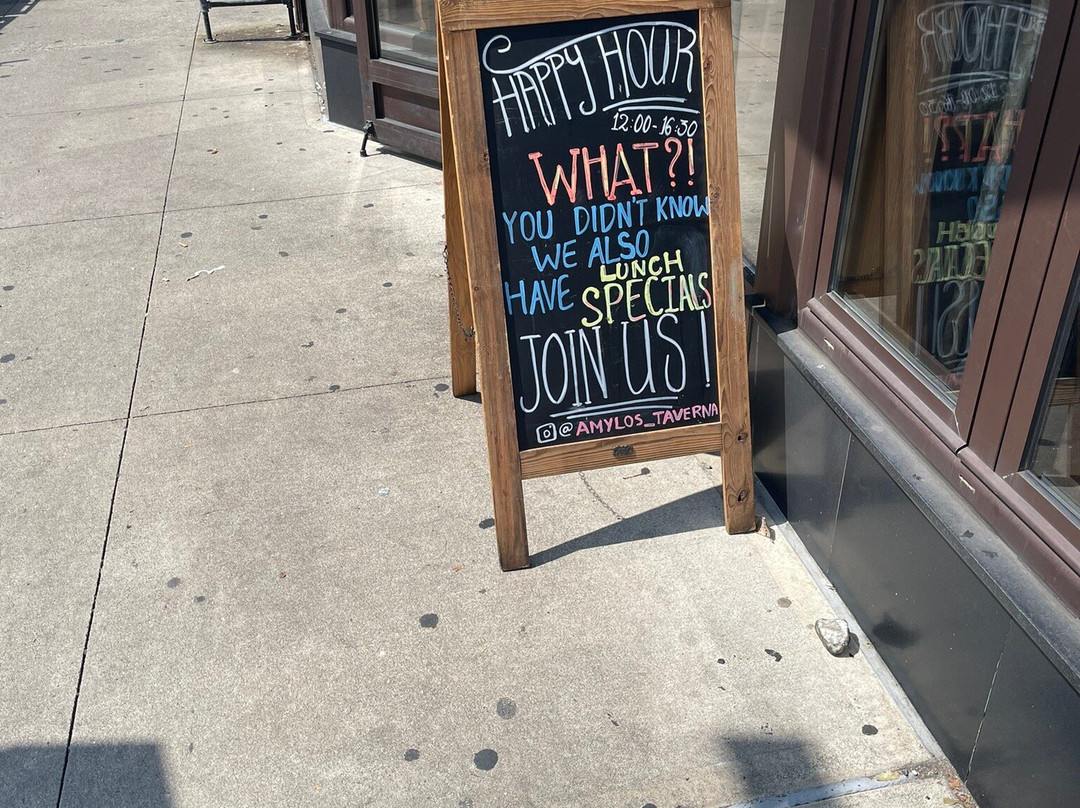 HAPPY HOUR
12:00-16:30
WHAT?!
YOU DIDN'T KNOW
WE ALSO
HAVE LUNCH
SPECIALS
JOIN US!
@AMYLOS_TAVERNA